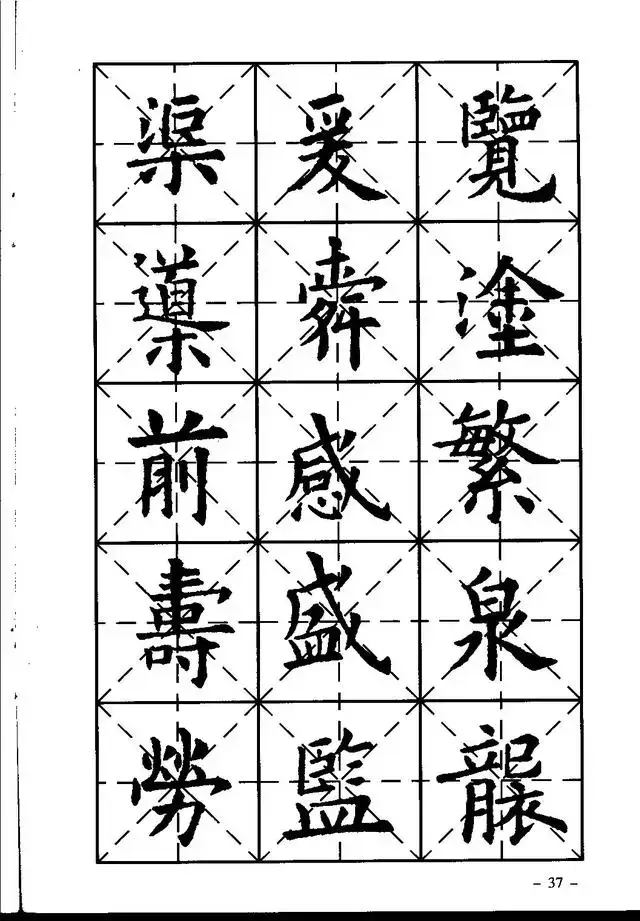 覽塗繁泉襲
爰舜感盛監
渠導前壽勞
- 37 -